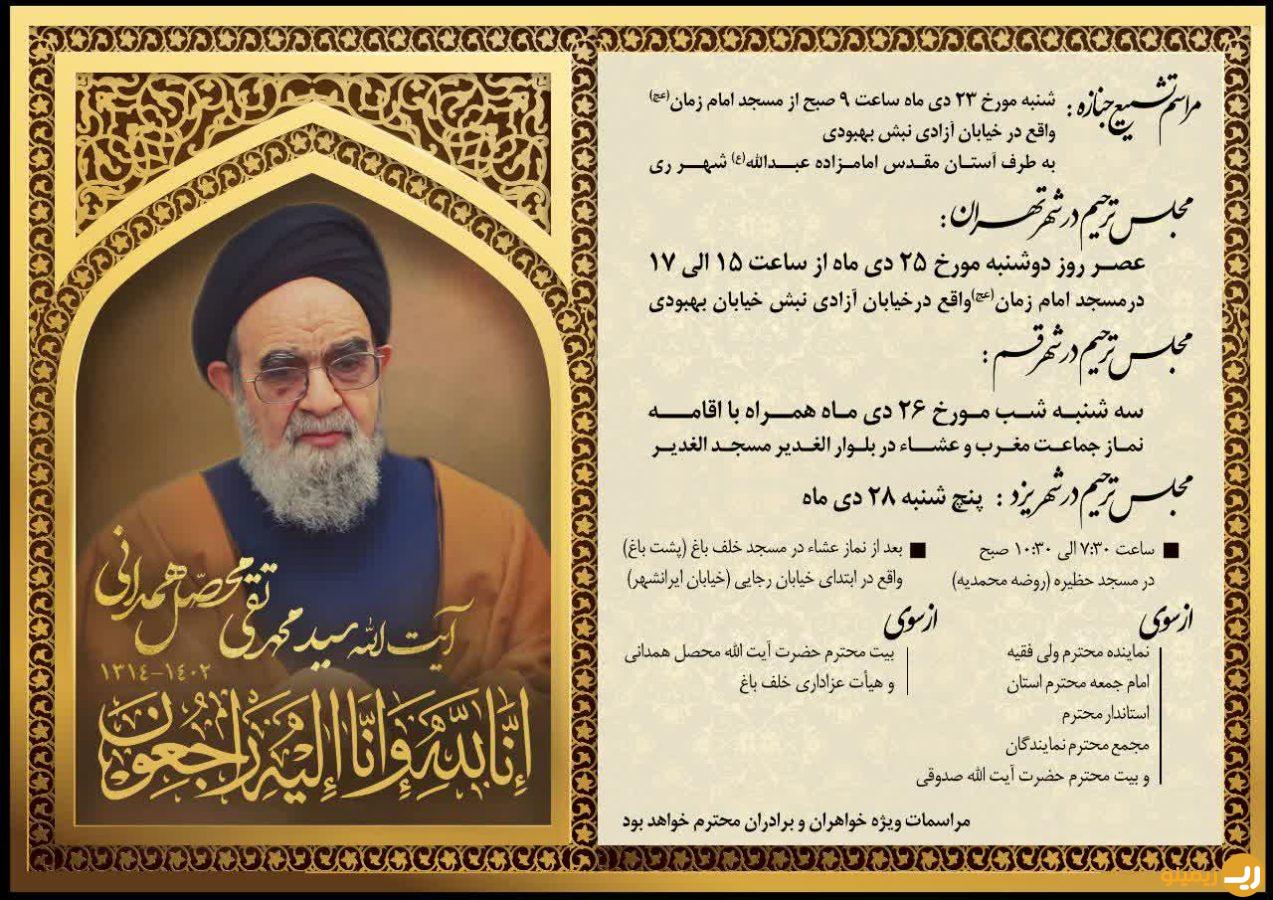 مراسم تشییع جنازه : شنبه مورخ ۲۳ دی ماه ساعت ۹ صبح از مسجد امام زمان(عج)
واقع در خیابان آزادی نبش بهبودی
به طرف آستان مقدس امامزاده عبدالله(ع) شهر ری
مجلس ترحیم در شهر تهران :
عصر روز دوشنبه مورخ ۲۵ دی ماه از ساعت ۱۵ الی ۱۷
در مسجد امام زمان(عج) واقع در خیابان آزادی نبش خیابان بهبودی
مجلس ترحیم در شهر قم :
سه شنبه شب مورخ ۲۶ دی ماه همراه با اقامه
نماز جماعت مغرب و عشاء در بلوار الغدیر مسجد الغدیر
مجلس ترحیم در شهر یزد : پنج شنبه ۲۸ دی ماه
■ ساعت ۷:۳۰ الی ۱۰:۳۰ صبح
در مسجد حظیره (روضه محمدیه)
از سوی
نماینده محترم ولی فقیه
امام جمعه محترم استان
استاندار محترم
مجمع محترم نمایندگان
و بیت محترم حضرت آیت الله صدوقی
■ بعد از نماز عشاء در مسجد خلف باغ (پشت باغ)
واقع در ابتدای خیابان رجایی (خیابان ایرانشهر)
از سوی
بیت محترم حضرت آیت الله محصل همدانی
و هیأت عزاداری خلف باغ
مراسمات ویژه خواهران و برادران محترم خواهد بود
آیت الله سید محمد تقی محصّل همدانی
۱۳۱۴-۱۴۰۲
إِنَّا لِلَّهِ وَإِنَّا إِلَيْهِ رَاجِعُونَ